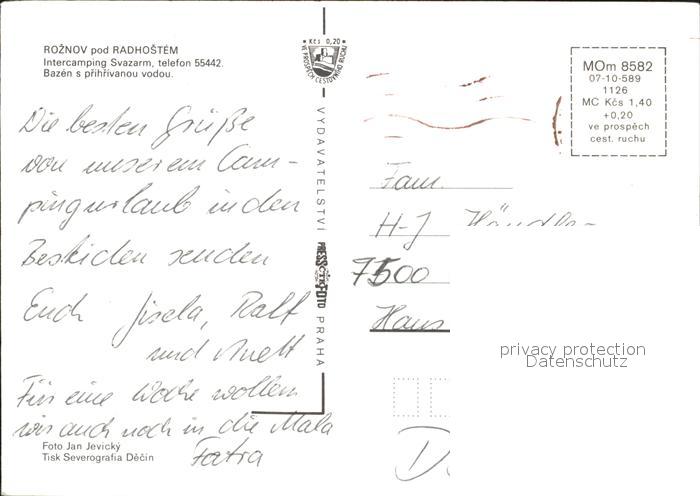 ROŽNOV pod RADHOŠTĚM
Intercamping Svazarm, telefon 55442.
Bazén s přihřívanou vodou.
• Kčs 0,20 •
VE PROSPĚCH CESTOVNÍHO RUCHU
MOm 8582
07-10-589
1126
MC Kčs 1,40
+0,20
ve prospěch
cest. ruchu
Die besten Grüße
von unserem Cam-
pingurlaub in den
Beskiden senden
Euch Gisela, Ralf
und Anett
Für eine Woche wollen
wir auch noch in die Mala
Fatra
VYDAVATELSTVÍ PRESSFOTO PRAHA
Fam.
H-J
7500
Hans
privacy protection
Datenschutz
D
Foto Jan Jevický
Tisk Severografia Děčín